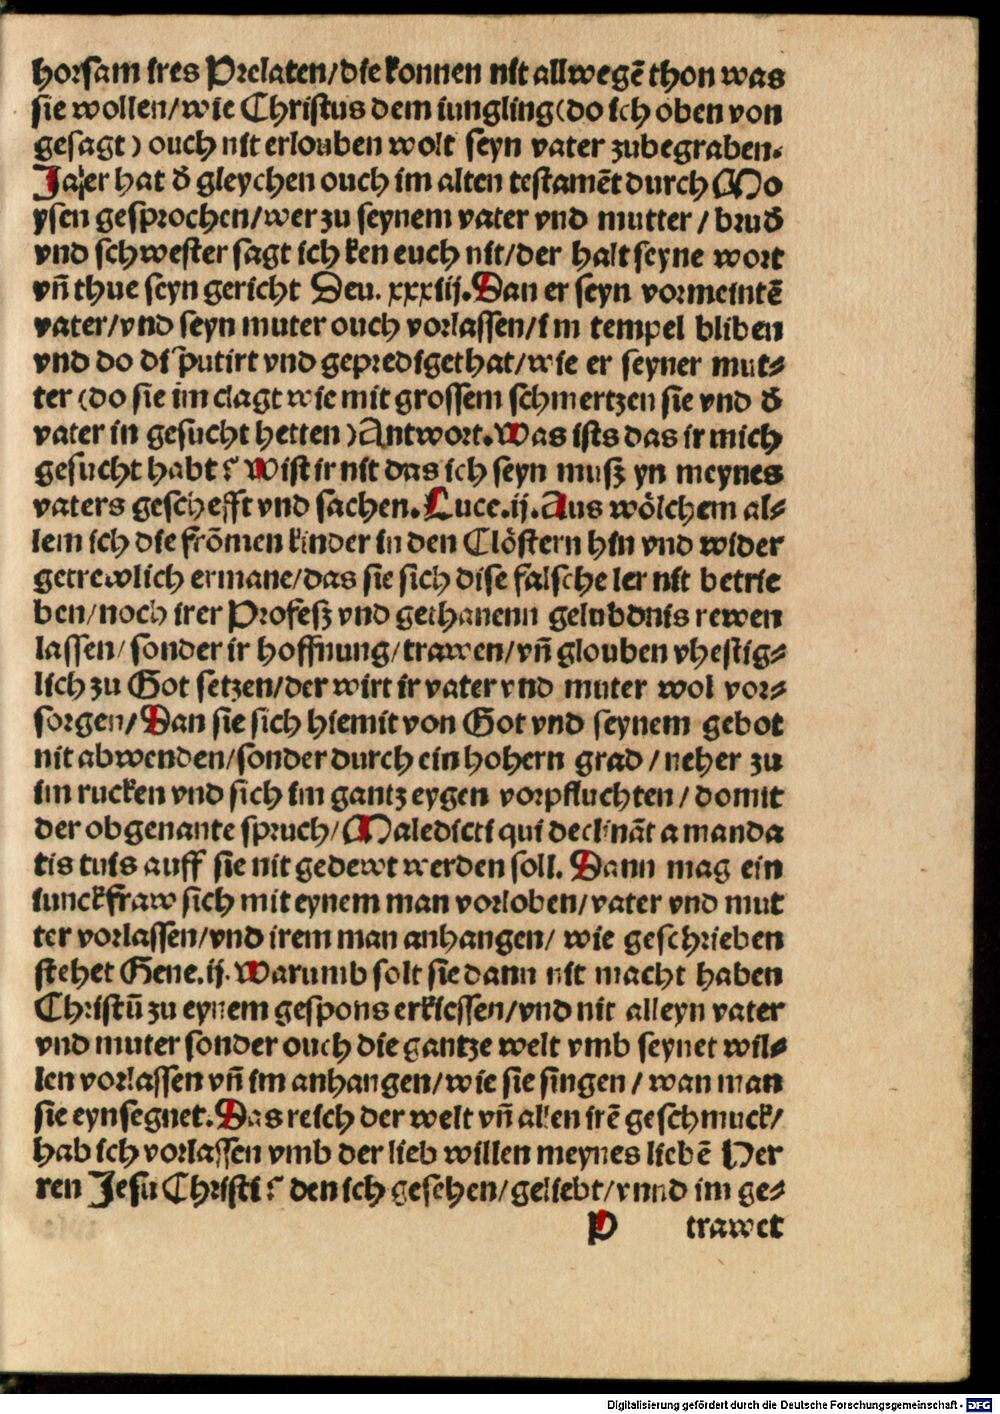 horsam ires Prelaten/die konnen nit allwegē thon was
sie wollen/wie Christus dem iungling(do ich oben von
gesagt) ouch nit erlouben wolt seyn vater zubegraben.
Ja/er hat ď gleychen ouch im alten testamēt durch Mo
ysen gesprochen/wer zu seynem vater vnd mutter/bruď
vnd schwester sagt ich ken euch nit/der halt seyne wort
vn̄ thue seyn gericht Deu. xxxiij. Dan er seyn vormeintē
vater/vnd seyn muter ouch vorlassen/im tempel bliben
vnd do disputirt vnd geprediget hat/wie er seyner mut⸗
ter (do sie im clagt wie mit grossem schmertzen sie vnd ď
vater in gesucht hetten) Antwort. Was ists das ir mich
gesucht habt? Wist ir nit das ich seyn musz yn meynes
vaters geschefft vnd sachen. Luce.ij. Aus wölchem al⸗
lem ich die frōmen kinder in den Clöstern hin vnd wider
getrewlich ermane/das sie sich dise falsche ler nit betrie
ben/noch irer Profesz vnd gethanenn gelubdnis rewen
lassen/sonder ir hoffnung/trawen/vn̄ glouben vhestig⸗
lich zu Got setzen/der wirt ir vater vnd muter wol vor⸗
sorgen/Dan sie sich hiemit von Got vnd seynem gebot
nit abwenden/sonder durch ein hohern grad/neher zu
im rucken vnd sich im gantz eygen vorpfluchten/domit
der obgenante spruch/Maledicti qui declināt a manda
tis tuis auff sie nit gedewt werden soll. Dann mag ein
iunckfraw sich mit eynem man vorloben/vater vnd mut
ter vorlassen/vnd irem man anhangen/wie geschrieben
stehet Gene.ij. Warumb solt sie dann nit macht haben
Christū zu eynem gespons erkiessen/vnd nit alleyn vater
vnd muter sonder ouch die gantze welt vmb seynet wil⸗
len vorlassen vn̄ im anhangen/wie sie singen/wan man
sie eynsegnet. Das reich der welt vn̄ allen irē geschmuck/
hab ich vorlassen vmb der lieb willen meynes liebē Her
ren Jesu Christi? den ich gesehen/geliebt/vnnd im ge⸗
P trawet
Digitalisierung gefördert durch die Deutsche Forschungsgemeinschaft - DFG